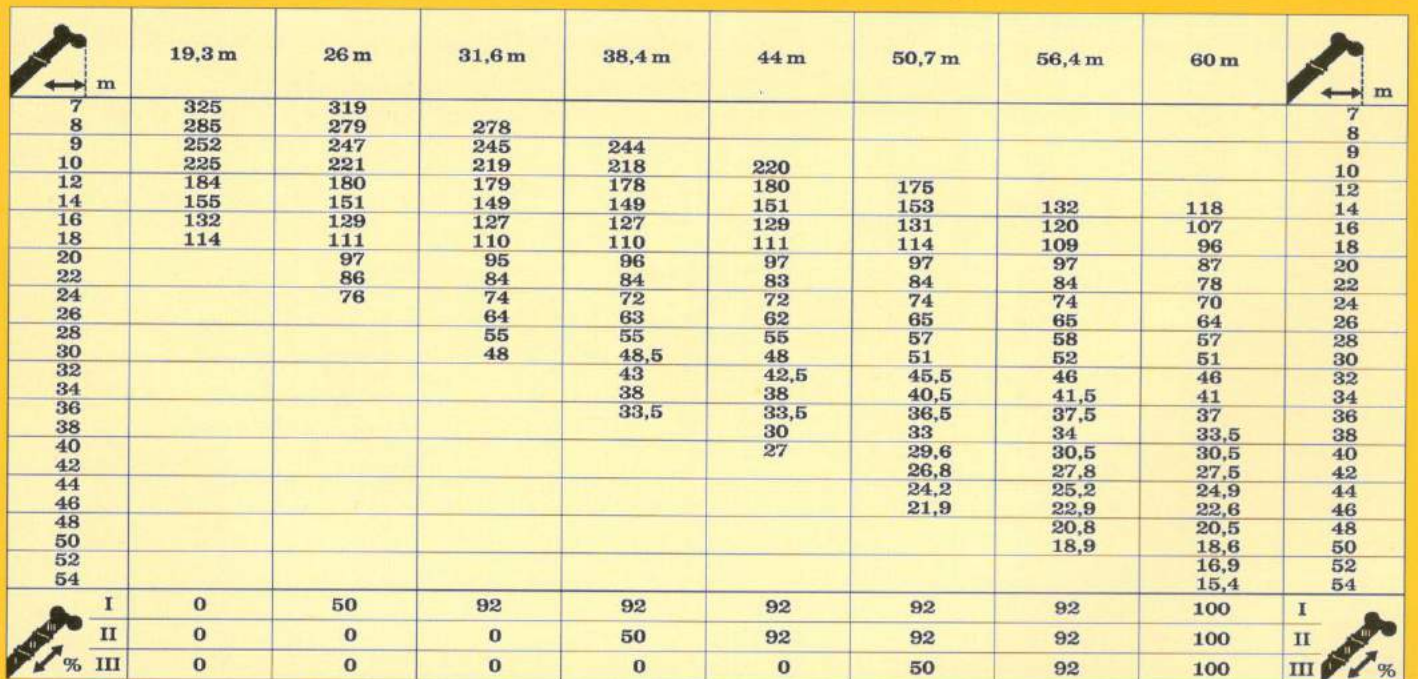 m 19,3 m 26 m 31,6 m 38,4 m 44 m 50,7 m 56,4 m 60 m m
7 325 319 7
8 285 279 278 8
9 252 247 245 244 9
10 225 221 219 218 220 10
12 184 180 179 178 180 175 12
14 155 151 149 149 151 153 132 118 14
16 132 129 127 127 129 131 120 107 16
18 114 111 110 110 111 114 109 96 18
20 97 95 96 97 97 97 87 20
22 86 84 84 83 84 84 78 22
24 76 74 72 72 74 74 70 24
26 64 63 62 65 65 64 26
28 55 55 55 57 58 57 28
30 48 48,5 48 51 52 51 30
32 43 42,5 45,5 46 46 32
34 38 38 40,5 41,5 41 34
36 33,5 33,5 36,5 37,5 37 36
38 30 33 34 33,5 38
40 27 29,6 30,5 30,5 40
42 26,8 27,8 27,5 42
44 24,2 25,2 24,9 44
46 21,9 22,9 22,6 46
48 20,8 20,5 48
50 18,9 18,6 50
52 16,9 52
54 15,4 54
I 0 50 92 92 92 92 92 100 I
II 0 0 0 50 92 92 92 100 II
% III 0 0 0 0 0 50 92 100 III %